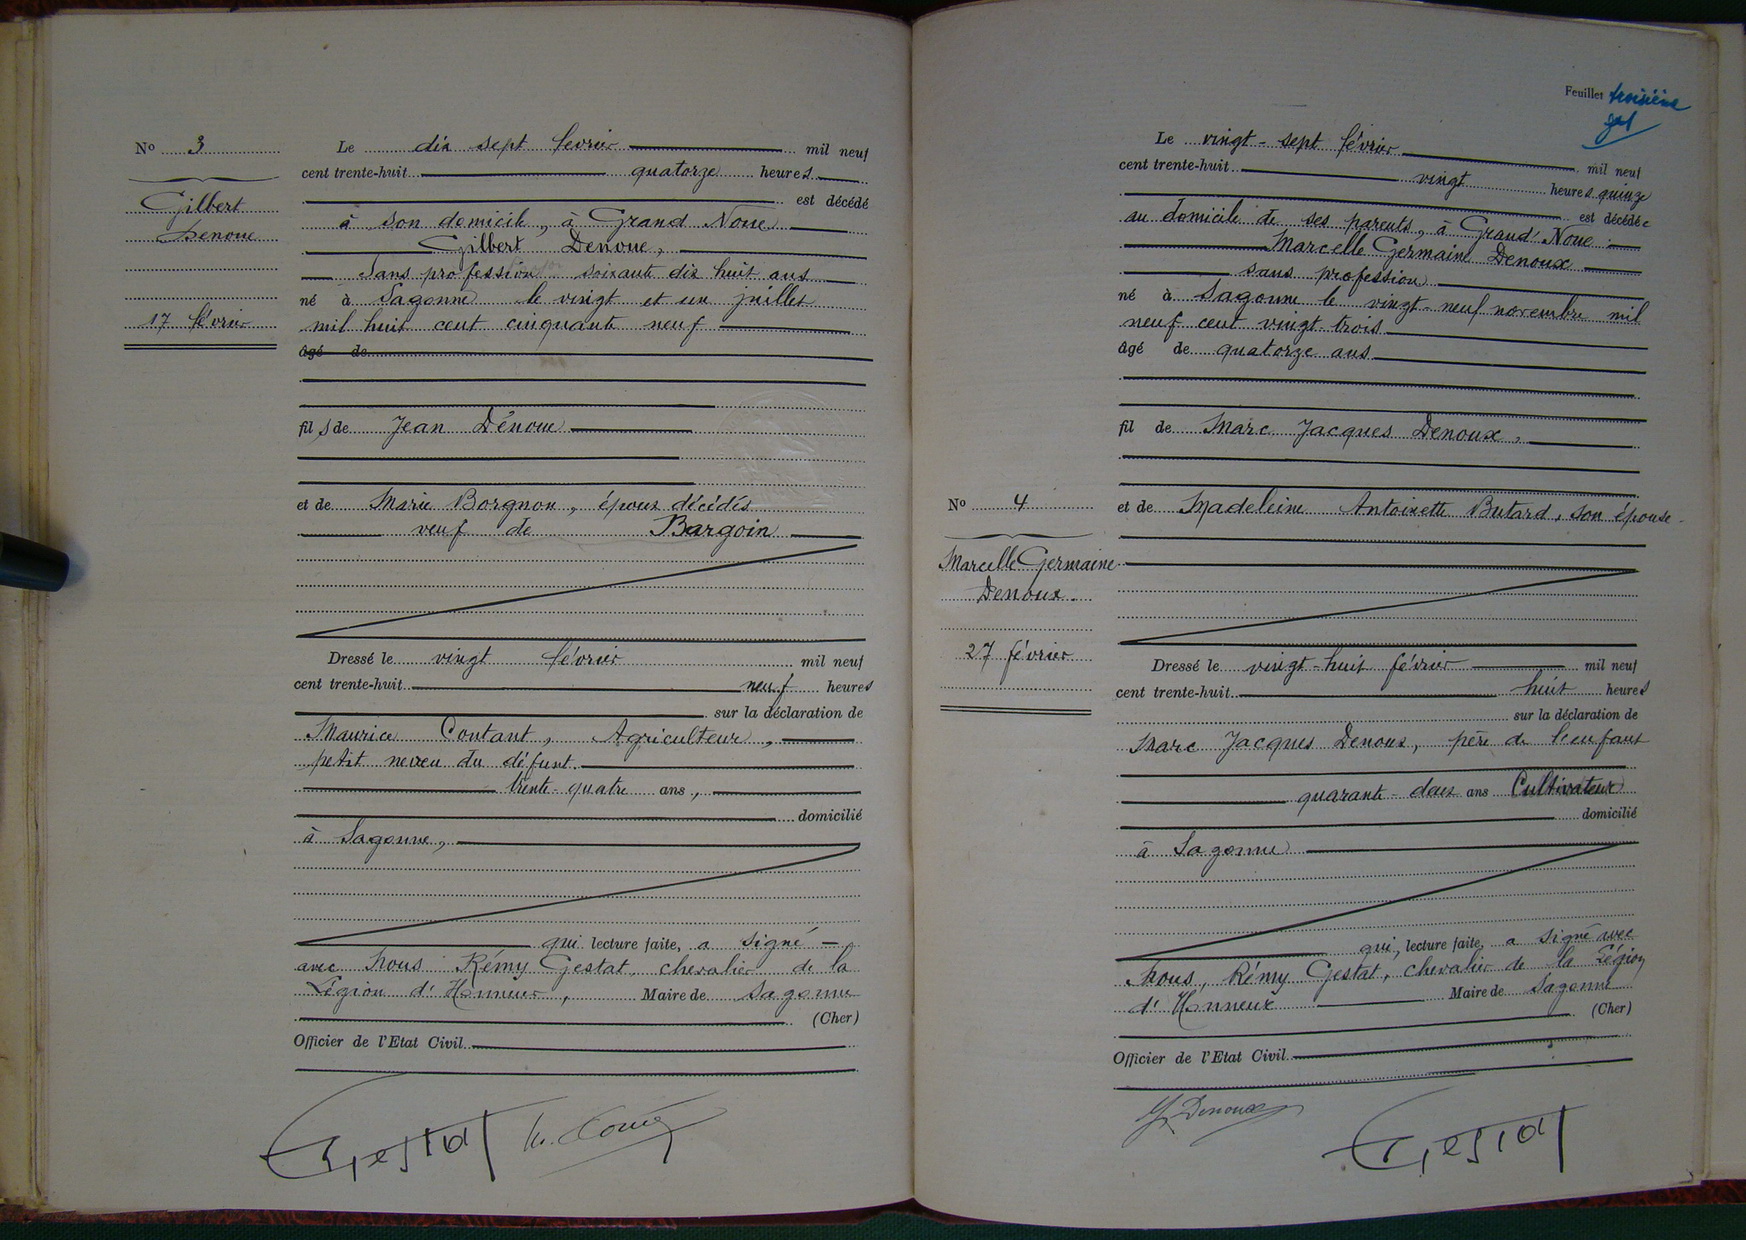 No 3
Gilbert
Denoue
17 février
Le dix sept fevrier mil neuf
cent trente-huit quatorze heures
est décédé
à son domicile, à Grand Noue
Gilbert Denoue,
Sans profession soixante dix huit ans
né à Sagonne le vingt et un juillet
mil huit cent cinquante neuf
âgé de
fils de Jean Dénoue
et de Marie Borgnon, époux décédés
veuf de Bargoin
Dressé le vingt février mil neuf
cent trente-huit neuf heures
sur la déclaration de
Maurice Coutant, Agriculteur,
petit neveu du défunt.
trente-quatre ans,
domicilié
à Sagonne,
qui lecture faite, a signé
avec Nous Rémy Gestat, chevalier de la
Légion d'Honneur, Maire de Sagonne
(Cher)
Officier de l'Etat Civil
Gestat
Feuillet troisième
Le vingt-sept février mil neuf
cent trente-huit vingt heures quinze
est décédée
au domicile de ses parents, à Grand' Noue
Marcelle Germaine Denoux
sans profession
né à Sagonne le vingt-neuf novembre mil
neuf cent vingt-trois
âgé de quatorze ans
fil de Marc Jacques Denoux,
No 4
et de Madeleine Antoinette Butard, son épouse
Marcelle Germaine
Denoux.
27 février
Dressé le vingt-huit février mil neuf
cent trente-huit huit heures
sur la déclaration de
Marc Jacques Denoux, père de l'enfant
quarante-deux ans Cultivateur
domicilié
à Sagonne
qui, lecture faite, a signé avec
Nous, Rémy Gestat, chevalier de la Légion
d'Honneur Maire de Sagonne
(Cher)
Officier de l'Etat Civil
Denoux
Gestat